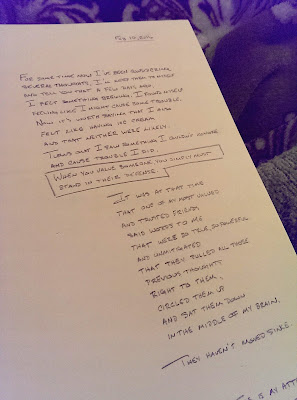 FOR SOME TIME NOW I'VE BEEN CONSIDERING
SEVERAL THOUGHTS, I'M KEEP THEM TO MYSELF
AND TELL YOU THAT A FEW DAYS AGO,
I FELT SOMETHING BREWING. I FOUND MYSELF
FEELING LIKE I MIGHT CAUSE SOME TROUBLE.
NOW IT'S WORTH SAYING THAT I ALSO
FELT LIKE HAVING ICE CREAM
AND THAT NEITHER WERE LIKELY.
TURNS OUT I SAW SOMETHING I COULDN'T IGNORE
AND CAUSE TROUBLE I DID.
WHEN YOU VALUE SOMEONE YOU SIMPLY MUST
STAND IN THEIR DEFENSE.
IT WAS AT THAT TIME
THAT ONE OF MY MOST VALUED
AND TRUSTED FRIENDS
SAID WORDS TO ME
THAT WERE SO TRUE, SO POWERFUL
AND UNMITIGATED
THAT THEY PULLED ALL THOSE
PREVIOUS THOUGHTS
RIGHT TO THEM,
CIRCLED THEM UP
AND SAT THEM DOWN
IN THE MIDDLE OF MY BRAIN.
THEY HAVEN'T MOVED SINCE.
IS MY ATT